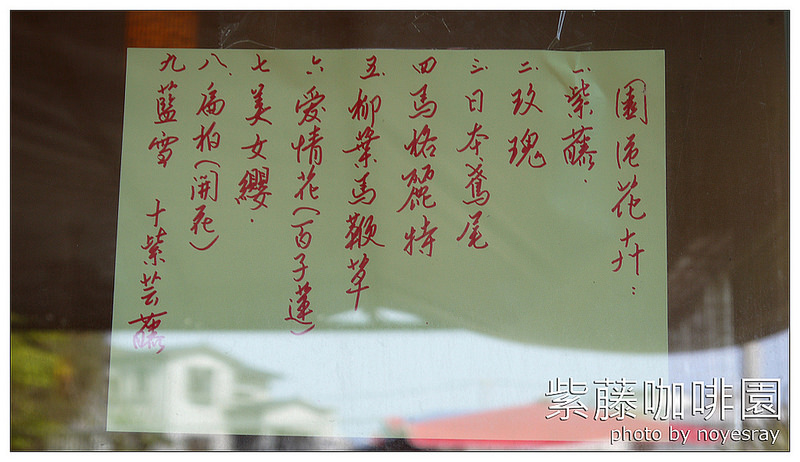 園區花卉：
一、紫藤.
二、玫瑰
三、日本鳶尾
四 馬格麗特
五、柳葉馬鞭草
六 愛情花(百子蓮)
七 美女纓.
八、扁柏(開花)
九 藍雪
十 紫芸藤
紫藤咖啡園
photo by noyesray